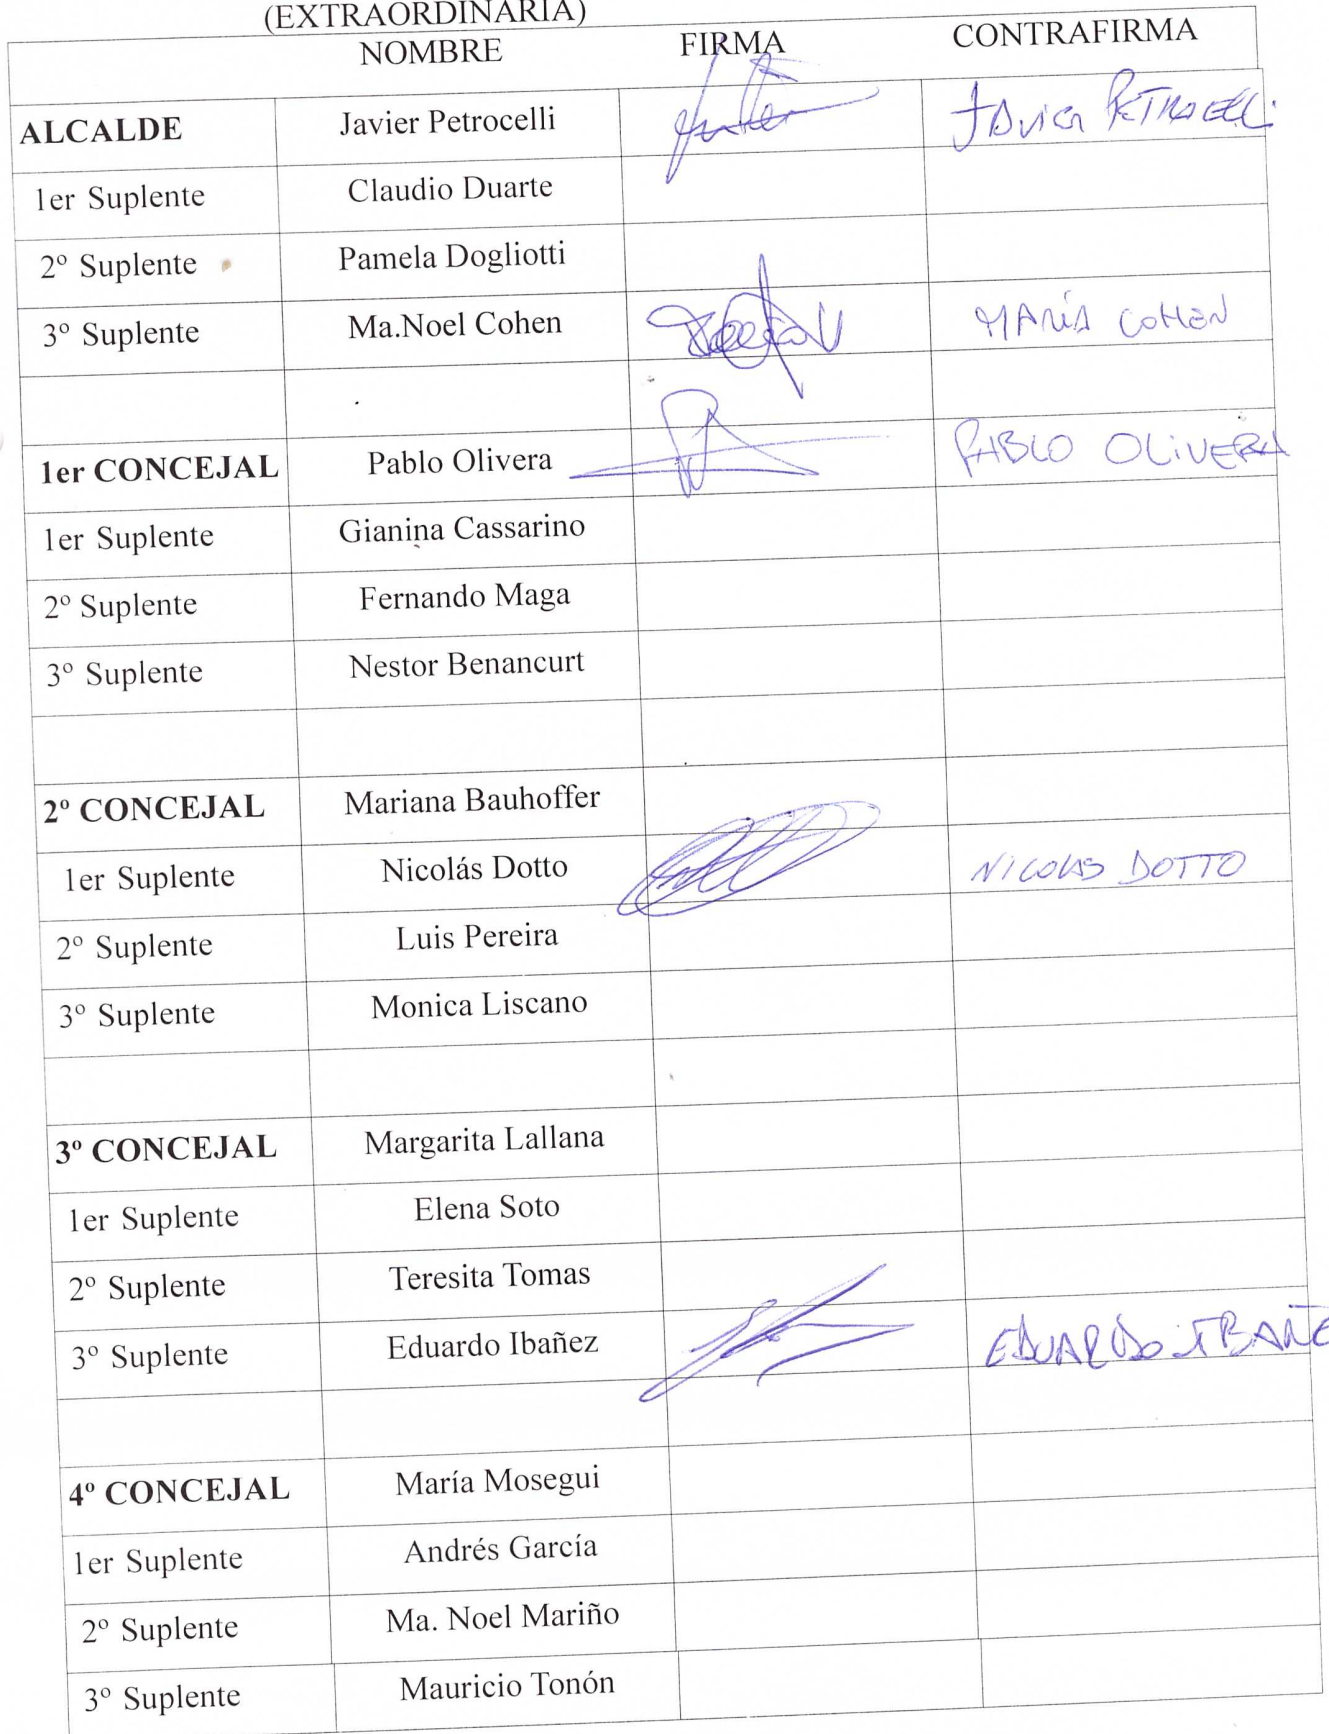 (EXTRAORDINARIA)
NOMBRE FIRMA CONTRAFIRMA
ALCALDE Javier Petrocelli Javier PETROCELLI
1er Suplente Claudio Duarte
2º Suplente Pamela Dogliotti
3º Suplente Ma.Noel Cohen MARÍA COHEN
1er CONCEJAL Pablo Olivera PABLO OLIVERA
1er Suplente Gianina Cassarino
2º Suplente Fernando Maga
3º Suplente Nestor Benancurt
2º CONCEJAL Mariana Bauhoffer
1er Suplente Nicolás Dotto NICOLAS DOTTO
2º Suplente Luis Pereira
3º Suplente Monica Liscano
3º CONCEJAL Margarita Lallana
1er Suplente Elena Soto
2º Suplente Teresita Tomas
3º Suplente Eduardo Ibañez EDUARDO IBAÑE
4º CONCEJAL María Mosegui
1er Suplente Andrés García
2º Suplente Ma. Noel Mariño
3º Suplente Mauricio Tonón